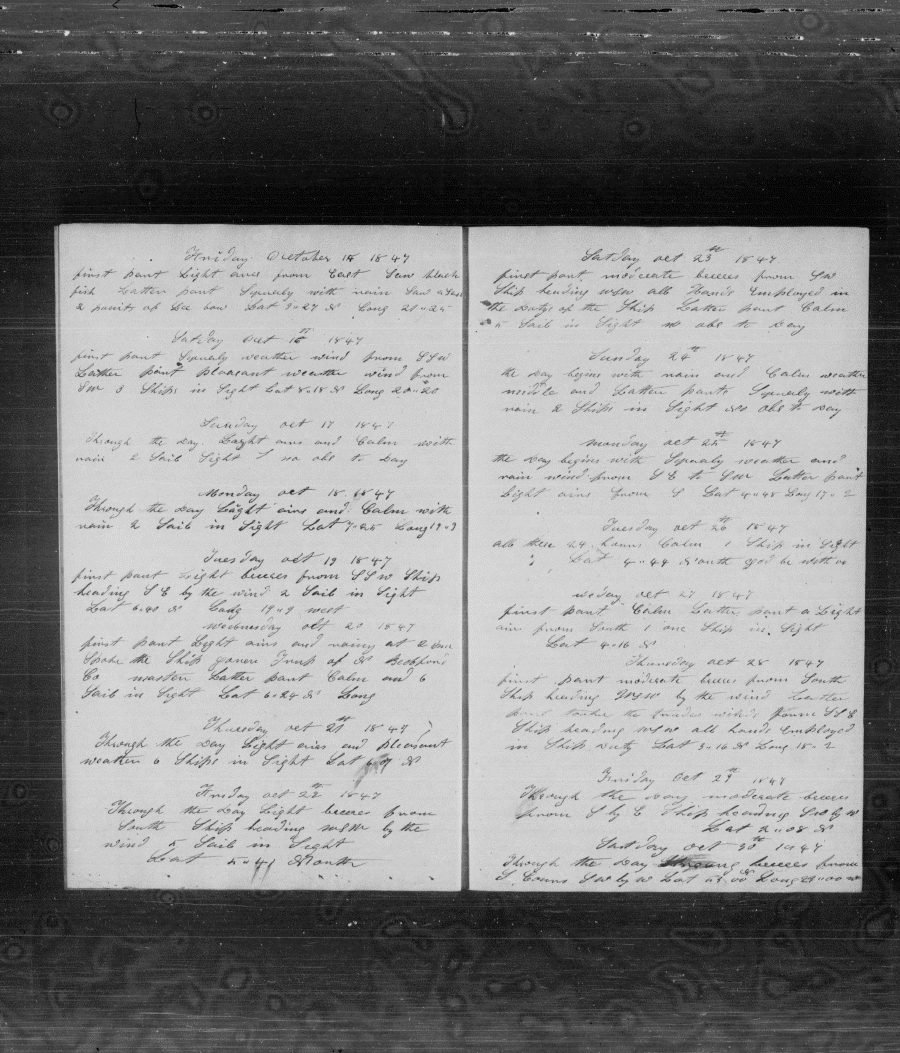 Friday October 15 1847
first part Light aires from East Saw black
fish Latter part Squaly with rain Saw a Sail
2 points of Lee bow Lat 9=27 N Long 20=25
Satday Oct 16th 1847
first part Squaly weather wind from SSW
Latter part pleasant weather wind from
SW 3 Ships in Sight Lat 8=18 N Long 20=20
Sunday oct 17 1847
Through the day Light airs and Calm with
rain 2 Sail Sight no obs to Day
Monday oct 18 1847
Through the Day Light airs and Calm with
rain 2 Sail in Sight Lat 7=25 Long 19=9
Tuesday oct 19 1847
first part Light breeses from SSW Ship
heading SE by the wind 2 Sail in Sight
Lat 6=40 N Long 19=9 west
Wednesday oct 20 1847
first part Light airs and rainy at
Spoke the Ship of N Bedford
Co master Latter part Calm and 6
Sail in Sight Lat 6=24 N Long
Thursday oct 21th 1847
Through the Day Light aires and pleasant
weather 6 Ships in Sight Lat N
Friday oct 22th 1847
Through the Day Light breeses from
South Ship heading WSW by the
wind Sail in Sight
Lat North
Satday oct 23th 1847
first part moderate breeses from SW
Ship heading WSW all Hands Employed in
the Dutys of the Ship Latter part Calm
5 Sail in Sight no obs to Day
Sunday 24th 1847
the Day begins with rain and Calm weather
middle and Latter parts Squaly with
rain 2 Ships in Sight No obs to Day
monday oct 25th 1847
the Day begins with Squaly weather and
rain wind from SE to SW Latter part
Light airs from S Lat 4=48 Long 17=2
Tuesday oct 26th 1847
all these 24 hours Calm 1 Ship in Sight
Lat 4=44 North god be with us
weday oct 27 1847
first part Calm Latter part a Light
air from South 1 one Ship in Sight
Lat 4=16 N
Thursday oct 28 1847
first part moderate breses from South
Ship heading WSW by the wind Latter
part winds from SSE
Ship heading WSW all hands Employed
in Ship Duty Lat 3=16 N Long 18=2
Friday Oct 29th 1847
Through the Day moderate breeses
from S by E Ship heading SW by W
Lat 2=08 N
Satday oct 30th 1847
Through the Day Strong breeses from
S Cours SW by W Lat N Long